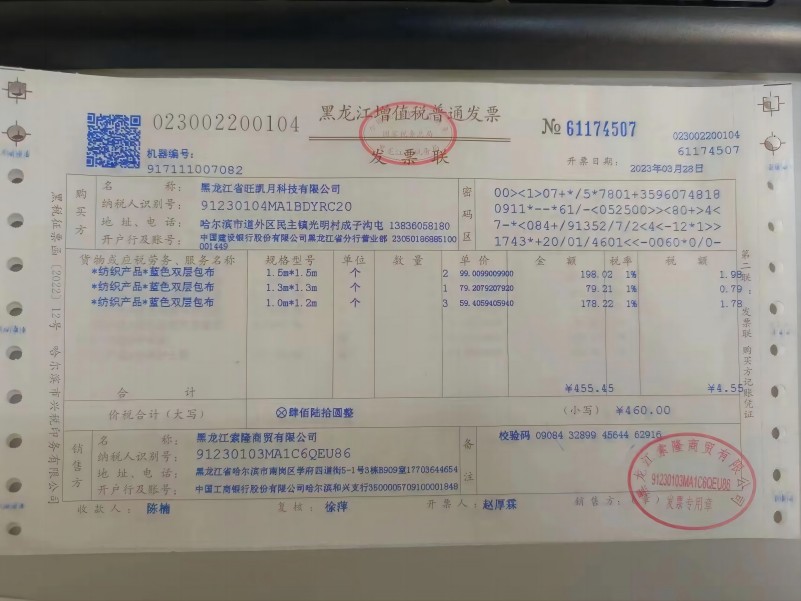 黑龙江增值税普通发票
023002200104
发票联
№ 61174507
023002200104
61174507
机器编号:
917111007082
开票日期: 2023年03月28日
购买方
名 称: 黑龙江省旺凯月科技有限公司
纳税人识别号: 91230104MA1BDYRC20
地址、电话: 哈尔滨市道外区民主镇光明村成子沟屯 13836058180
开户行及账号: 中国建设银行股份有限公司黑龙江省分行营业部 23050186885100
001449
密码区
00><1>07+*/5*7801+3596074818
0911*--*61/-<052500>><80+>4<
7-*<084+/91352/7/2<4<-12*1>>
1743*+20/01/4601<<-0060*0/0-
货物或应税劳务、服务名称 规格型号 单位 数量 单价 金额 税率 税额
*纺织产品*蓝色双层包布 1.5m*1.5m 个 2 99.0099009900 198.02 1% 1.98
*纺织产品*蓝色双层包布 1.3m*1.3m 个 1 79.2079207920 79.21 1% 0.79
*纺织产品*蓝色双层包布 1.0m*1.2m 个 3 59.4059405940 178.22 1% 1.78
合 计 ¥455.45 ¥4.55
价税合计(大写) ⊗肆佰陆拾圆整 (小写) ¥460.00
销售方
名 称: 黑龙江索隆商贸有限公司
纳税人识别号: 91230103MA1C6QEU86
地址、电话: 黑龙江省哈尔滨市南岗区学府四道街5-1号3栋B909室17703644654
开户行及账号: 中国工商银行股份有限公司哈尔滨和兴支行3500005709100001849
备注
校验码 09084 32899 45644 62916
收款人: 陈楠 复核: 徐萍 开票人: 赵厚霖 销售方:
黑龙江索隆商贸有限公司
91230103MA1C6QEU86
发票专用章
第二联:发票联 购买方记账凭证
黑税征票函(2022)12号 哈尔滨市兴税印务有限公司